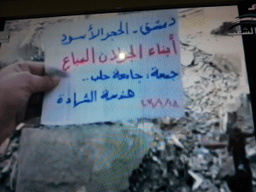 دمشق - الحجر الأسود
أبناء الجولان المباع
جمعة: جامعة حلب..
هندسة الشهادة